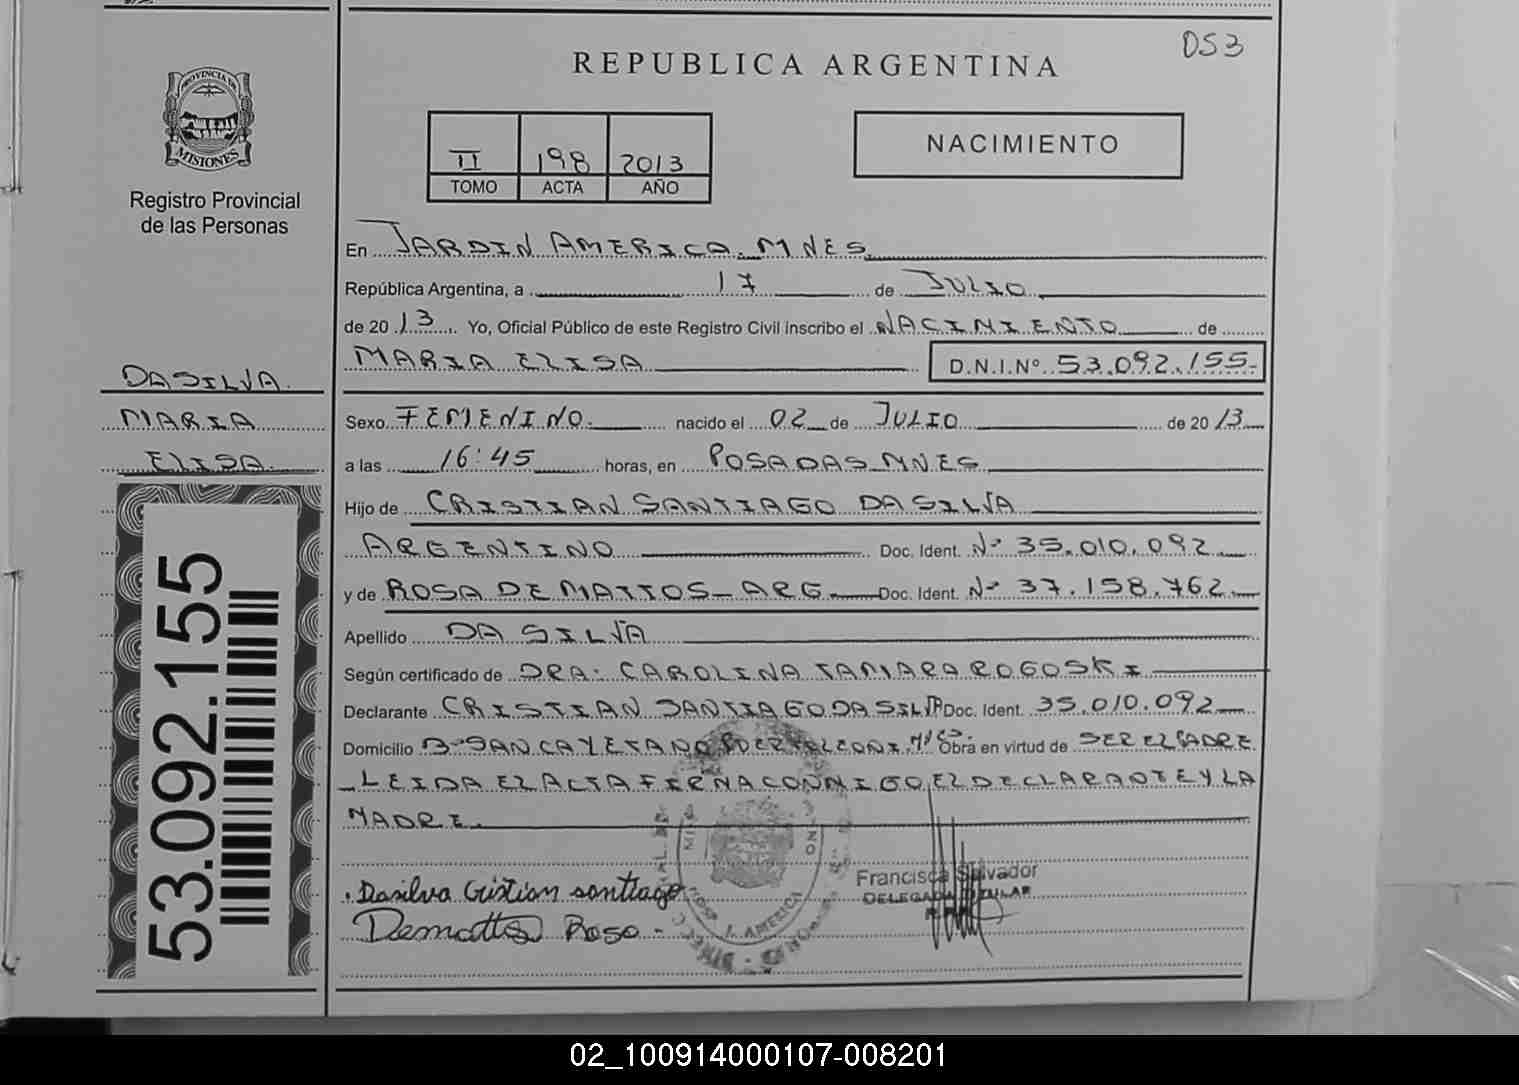 DS3
REPUBLICA ARGENTINA
PROVINCIA DE
MISIONES
Registro Provincial
de las Personas
II 198 2013
TOMO ACTA AÑO
NACIMIENTO
En JARDIN AMERICA. MNES
República Argentina, a 17 de JULIO
de 2013. Yo, Oficial Público de este Registro Civil inscribo el NACIMIENTO de
MARIA ELISA D.N.I.Nº 53.092.155-
DASILVA.
MARIA
ELISA.
Sexo FEMENINO. nacido el 02 de JULIO de 2013
a las 16:45 horas, en POSADAS MNES
Hijo de CRISTIAN SANTIAGO DA SILVA
ARGENTINO Doc. Ident. Nº 35.010.092
y de ROSA DE MATTOS - ARG. Doc. Ident. Nº 37.158.762
Apellido DA SILVA
Según certificado de DRA: CAROLINA TAMARA ROGOSKI
Declarante CRISTIAN SANTIAGO DA SILVA Doc. Ident. 35.010.092
Domicilio Bº SAN CAYETANO PUERTO LEONI. Obra en virtud de SER EL PADRE
LEIDA EL ACTA FIRMA CONMIGO EL DECLARANTE Y LA
MADRE.
53.092.155
J. AMERICA
Francisca Salvador
DELEGADA TITULAR
Dasilva Cristian santiago
Demattos Rosa -
02_100914000107-008201